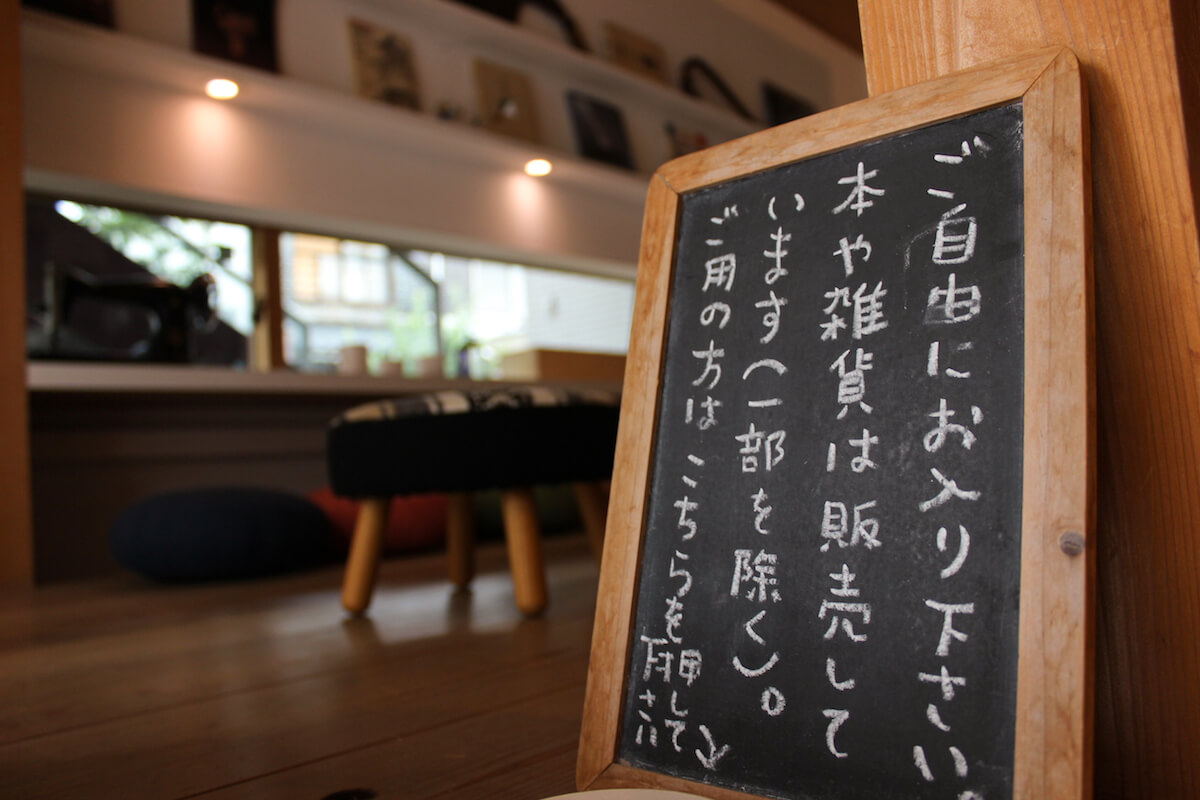 ご自由にお入り下さい。
本や雑貨は販売して
います(一部を除く)。
ご用の方はこちらを押して
下さい